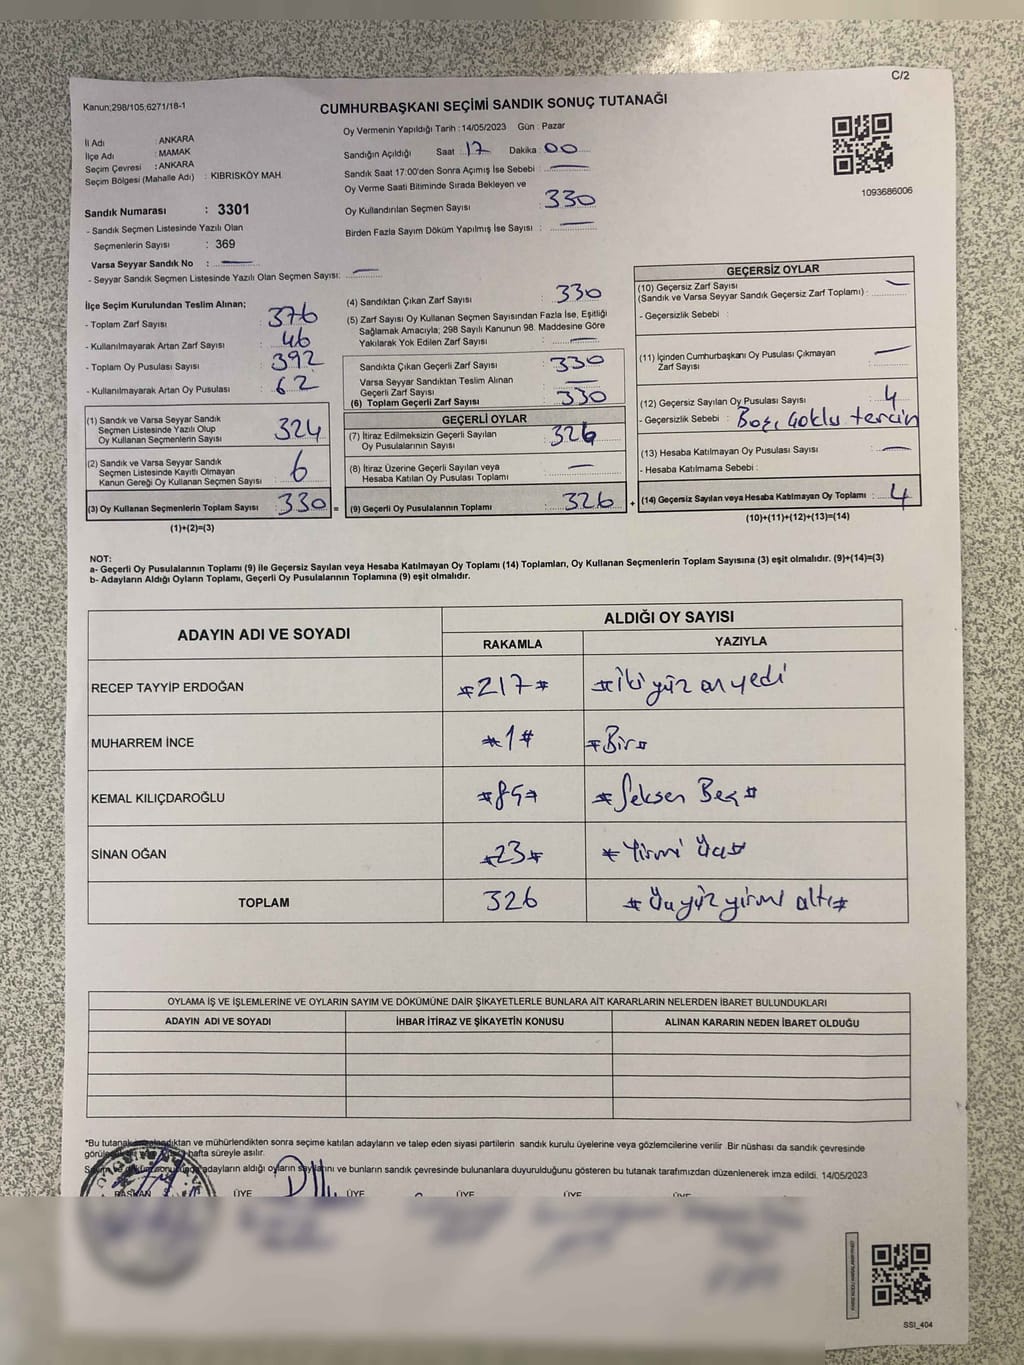 C/2
Kanun;298/105;6271/18-1
CUMHURBAŞKANI SEÇİMİ SANDIK SONUÇ TUTANAĞI
İl Adı : ANKARA
İlçe Adı : MAMAK
Seçim Çevresi : ANKARA
Seçim Bölgesi (Mahalle Adı) : KIBRISKÖY MAH.
Oy Vermenin Yapıldığı Tarih : 14/05/2023 Gün : Pazar
Sandığın Açıldığı Saat : 17 Dakika : 00
Sandık Saat 17:00'den Sonra Açımış İse Sebebi : —
Oy Verme Saati Bitiminde Sırada Bekleyen ve
Oy Kullandırılan Seçmen Sayısı : 330
Birden Fazla Sayım Döküm Yapılmış İse Sayısı : —
1093686006
Sandık Numarası : 3301
- Sandık Seçmen Listesinde Yazılı Olan
Seçmenlerin Sayısı : 369
Varsa Seyyar Sandık No : —
- Seyyar Sandık Seçmen Listesinde Yazılı Olan Seçmen Sayısı: —
İlçe Seçim Kurulundan Teslim Alınan;
- Toplam Zarf Sayısı : 376
- Kullanılmayarak Artan Zarf Sayısı : 46
- Toplam Oy Pusulası Sayısı : 392
- Kullanılmayarak Artan Oy Pusulası : 62
(1) Sandık ve Varsa Seyyar Sandık
Seçmen Listesinde Yazılı Olup
Oy Kullanan Seçmenlerin Sayısı : 324
(2) Sandık ve Varsa Seyyar Sandık
Seçmen Listesinde Kayıtlı Olmayan
Kanun Gereği Oy Kullanan Seçmen Sayısı : 6
(3) Oy Kullanan Seçmenlerin Toplam Sayısı : 330 =
(1)+(2)=(3)
(4) Sandıktan Çıkan Zarf Sayısı : 330
(5) Zarf Sayısı Oy Kullanan Seçmen Sayısından Fazla İse, Eşitliği
Sağlamak Amacıyla; 298 Sayılı Kanunun 98. Maddesine Göre
Yakılarak Yok Edilen Zarf Sayısı : —
Sandıkta Çıkan Geçerli Zarf Sayısı : 330
Varsa Seyyar Sandıktan Teslim Alınan
Geçerli Zarf Sayısı : —
(6) Toplam Geçerli Zarf Sayısı : 330
GEÇERLİ OYLAR
(7) İtiraz Edilmeksizin Geçerli Sayılan
Oy Pusulalarının Sayısı : 326
(8) İtiraz Üzerine Geçerli Sayılan veya
Hesaba Katılan Oy Pusulası Toplamı : —
(9) Geçerli Oy Pusulalarının Toplamı : 326 +
GEÇERSİZ OYLAR
(10) Geçersiz Zarf Sayısı
(Sandık ve Varsa Seyyar Sandık Geçersiz Zarf Toplamı) : —
- Geçersizlik Sebebi :
(11) İçinden Cumhurbaşkanı Oy Pusulası Çıkmayan
Zarf Sayısı : —
(12) Geçersiz Sayılan Oy Pusulası Sayısı : 4
- Geçersizlik Sebebi : Boş, Çoklu tercih
(13) Hesaba Katılmayan Oy Pusulası Sayısı : —
- Hesaba Katılmama Sebebi :
(14) Geçersiz Sayılan veya Hesaba Katılmayan Oy Toplamı : 4
(10)+(11)+(12)+(13)=(14)
NOT:
a- Geçerli Oy Pusulalarının Toplamı (9) ile Geçersiz Sayılan veya Hesaba Katılmayan Oy Toplamı (14) Toplamları, Oy Kullanan Seçmenlerin Toplam Sayısına (3) eşit olmalıdır. (9)+(14)=(3)
b- Adayların Aldığı Oyların Toplamı, Geçerli Oy Pusulalarının Toplamına (9) eşit olmalıdır.
ADAYIN ADI VE SOYADI ALDIĞI OY SAYISI
RAKAMLA YAZIYLA
RECEP TAYYİP ERDOĞAN #217# #iki yüz on yedi
MUHARREM İNCE #1# #Bir#
KEMAL KILIÇDAROĞLU #85# #Seksen Beş#
SİNAN OĞAN #23# #Yirmi Üç#
TOPLAM 326 #Üç yüz yirmi altı#
OYLAMA İŞ VE İŞLEMLERİNE VE OYLARIN SAYIM VE DÖKÜMÜNE DAİR ŞİKAYETLERLE BUNLARA AİT KARARLARIN NELERDEN İBARET BULUNDUKLARI
ADAYIN ADI VE SOYADI İHBAR İTİRAZ VE ŞİKAYETİN KONUSU ALINAN KARARIN NEDEN İBARET OLDUĞU
*Bu tutanak imzalandıktan ve mühürlendikten sonra seçime katılan adayların ve talep eden siyasi partilerin sandık kurulu üyelerine veya gözlemcilerine verilir. Bir nüshası da sandık çevresinde
hafta süreyle asılır.
adayların aldığı oyların sayılarını ve bunların sandık çevresinde bulunanlara duyurulduğunu gösteren bu tutanak tarafımızdan düzenlenerek imza edildi. 14/05/2023
BAŞKAN ÜYE ÜYE ÜYE ÜYE ÜYE
SSI_404